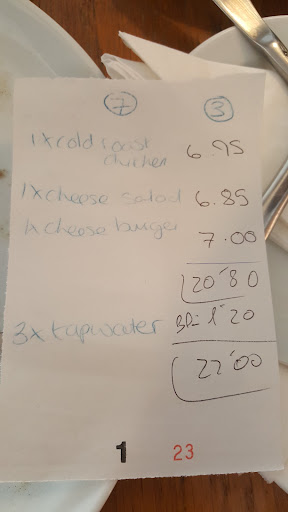 7 3
1x cold roast
chicken 6.95
1x cheese salad 6.85
1x cheese burger
7.00
20'80
3x tapwater BD= 1'20
22'00
1 23